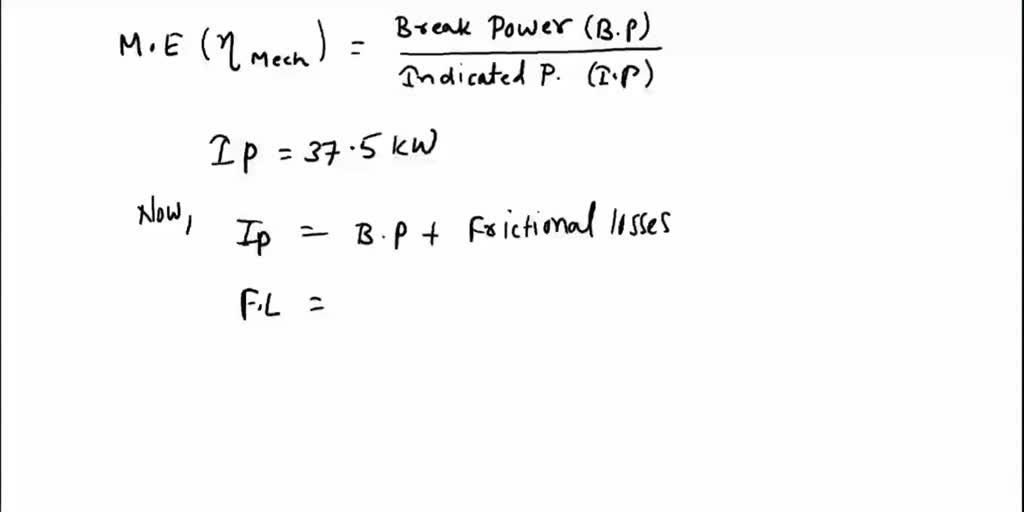 M.E (η Mech) = Break Power (B.P)
Indicated P. (I.P)
Ip = 37.5 kW
Now, Ip = B.P + Frictional losses
F.L =